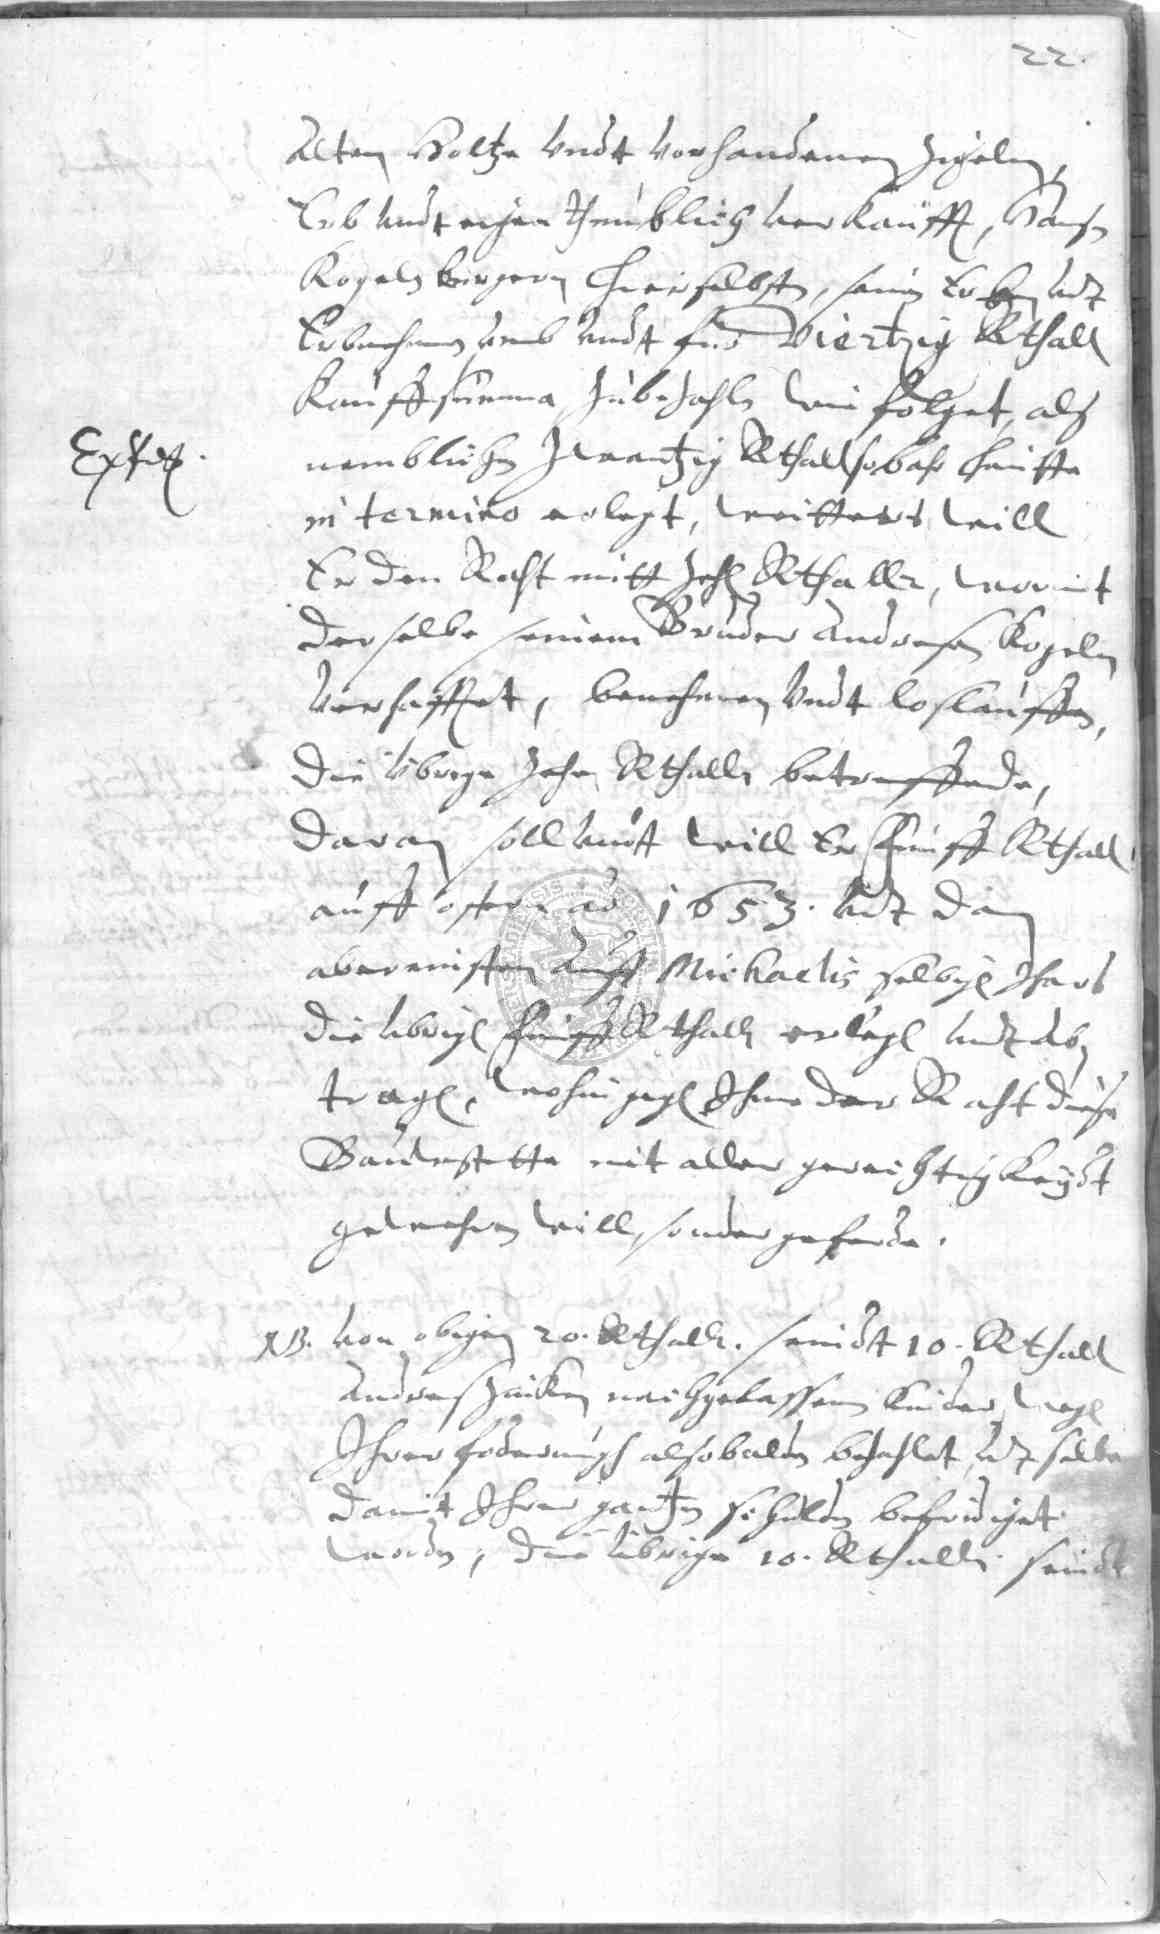 22.
Alten Holtze Undt Vorhandenen Zigeln,
Erb undt eigenthumblich verkaufft, Hanß
Kogeln bürgern hierselbsten, sein Erben undt
Erbnehmen umb undt für Viertzig Rthall
Kauffsumma zubezahlen wie folget, alß
nemblichen Zwantzig Rthall so bahr heütte
in termino erlegt, weitters will
Er den Rest mitt Zehn Rthaller, wormit
derselbe seinem Bruder Andresen Kogeln
verhafftet, benehmen Undt loslauffen,
die übrige Zehen Rthaller betreffende,
daran soll undt will Er Fünff Rthall
auff ostern ao 1653. undt dan
auff Michaelis selbigen Jhars
die ubrigen Fünff Rthall erlegen undt ab
tragen, wohingegen Ihme der Raht diese
Baudestette mit aller gerechtigkeydt
gewehren will, sonder geferde.
NB. Von obigen 20. Rthall. seindt 10. Rthall
Andreß nachgelassenen Kinder wegen
Ihrer foderungh alsobalden bezahlet, undt selbe
damit Ihrer gantzen schulden befridiget
worden, die übrige 10. Rthall. seindt